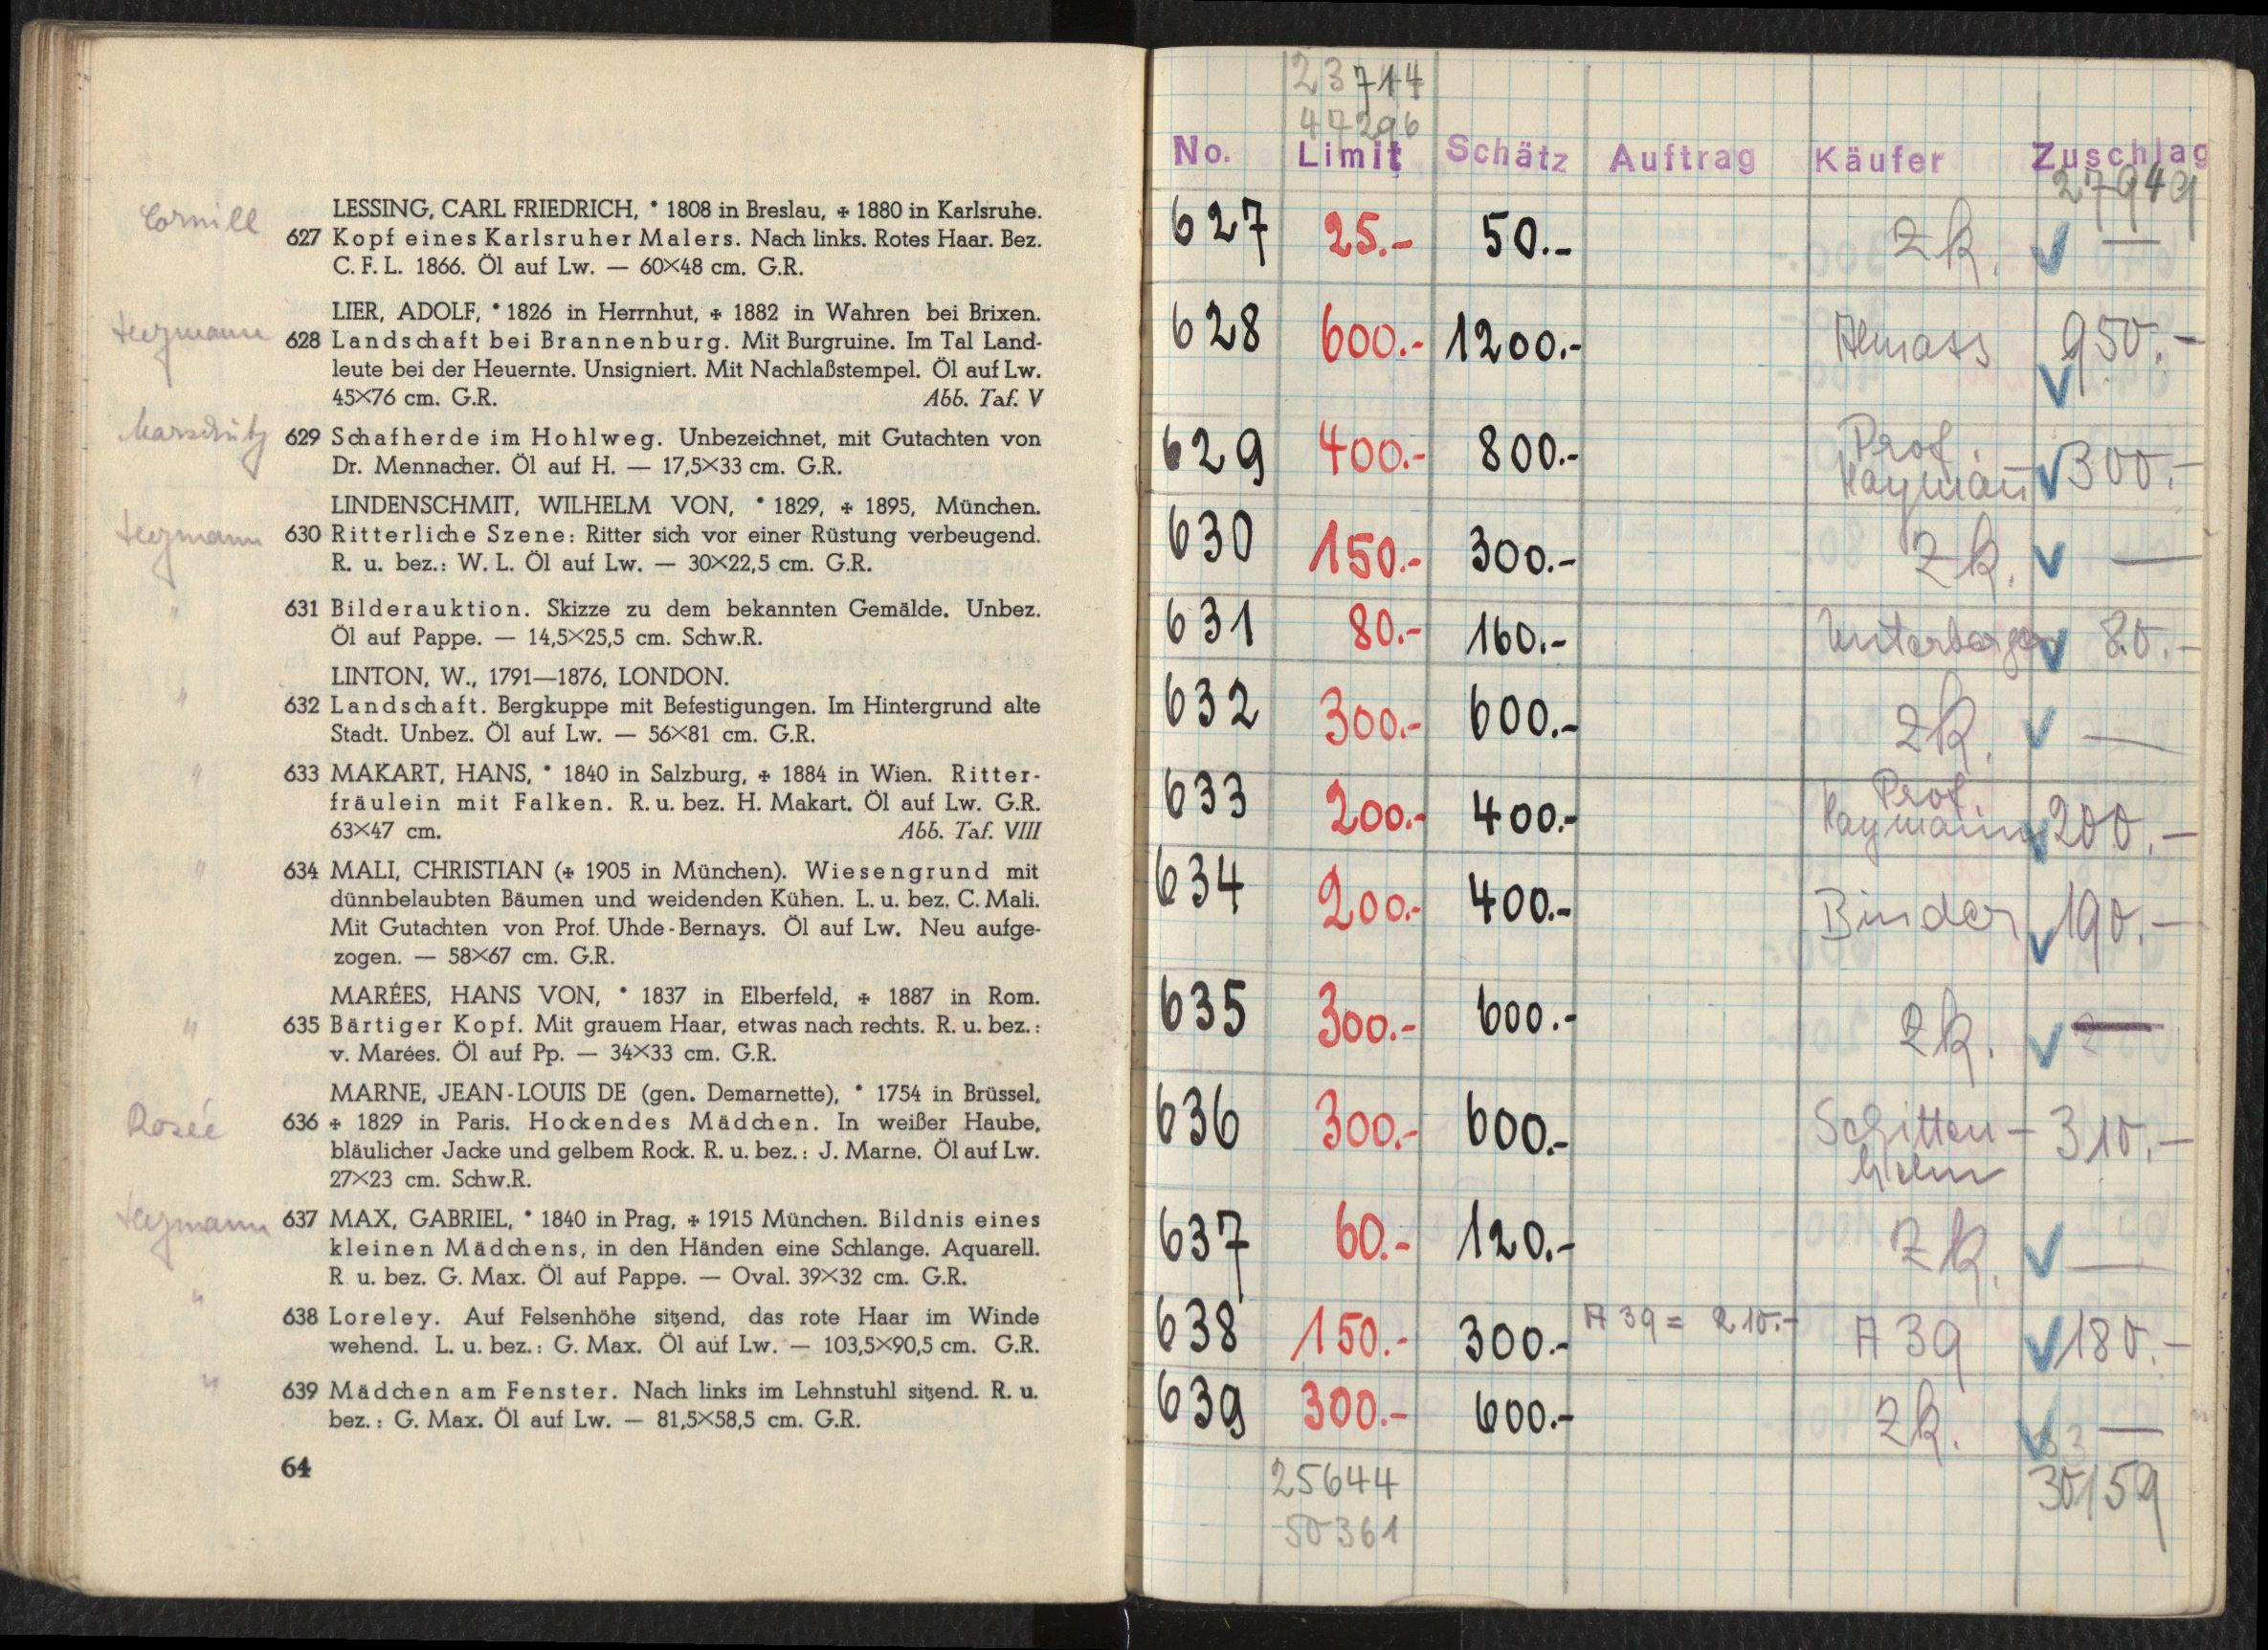 Cornill
LESSING, CARL FRIEDRICH, * 1808 in Breslau, ✠ 1880 in Karlsruhe.
627 Kopf eines Karlsruher Malers. Nach links. Rotes Haar. Bez.
C. F. L. 1866. Öl auf Lw. — 60×48 cm. G.R.
LIER, ADOLF, * 1826 in Herrnhut, ✠ 1882 in Wahren bei Brixen.
628 Landschaft bei Brannenburg. Mit Burgruine. Im Tal Land-
leute bei der Heuernte. Unsigniert. Mit Nachlaßstempel. Öl auf Lw.
45×76 cm. G.R. Abb. Taf. V
629 Schafherde im Hohlweg. Unbezeichnet, mit Gutachten von
Dr. Mennacher. Öl auf H. — 17,5×33 cm. G.R.
LINDENSCHMIT, WILHELM VON, * 1829, ✠ 1895, München.
630 Ritterliche Szene: Ritter sich vor einer Rüstung verbeugend.
R. u. bez.: W. L. Öl auf Lw. — 30×22,5 cm. G.R.
" 631 Bilderauktion. Skizze zu dem bekannten Gemälde. Unbez.
Öl auf Pappe. — 14,5×25,5 cm. Schw.R.
LINTON, W., 1791—1876, LONDON.
" 632 Landschaft. Bergkuppe mit Befestigungen. Im Hintergrund alte
Stadt. Unbez. Öl auf Lw. — 56×81 cm. G.R.
" 633 MAKART, HANS, * 1840 in Salzburg, ✠ 1884 in Wien. Ritter-
fräulein mit Falken. R. u. bez. H. Makart. Öl auf Lw. G.R.
63×47 cm. Abb. Taf. VIII
" 634 MALI, CHRISTIAN (✠ 1905 in München). Wiesengrund mit
dünnbelaubten Bäumen und weidenden Kühen. L. u. bez. C. Mali.
Mit Gutachten von Prof. Uhde-Bernays. Öl auf Lw. Neu aufge-
zogen. — 58×67 cm. G.R.
MARÉES, HANS VON, * 1837 in Elberfeld, ✠ 1887 in Rom.
" 635 Bärtiger Kopf. Mit grauem Haar, etwas nach rechts. R. u. bez.:
v. Marées. Öl auf Pp. — 34×33 cm. G.R.
MARNE, JEAN-LOUIS DE (gen. Demarnette), * 1754 in Brüssel,
Rosée 636 ✠ 1829 in Paris. Hockendes Mädchen. In weißer Haube,
bläulicher Jacke und gelbem Rock. R. u. bez.: J. Marne. Öl auf Lw.
27×23 cm. Schw.R.
637 MAX, GABRIEL, * 1840 in Prag, ✠ 1915 München. Bildnis eines
kleinen Mädchens, in den Händen eine Schlange. Aquarell.
R u. bez. G. Max. Öl auf Pappe. — Oval. 39×32 cm. G.R.
" 638 Loreley. Auf Felsenhöhe sitzend, das rote Haar im Winde
wehend. L. u. bez.: G. Max. Öl auf Lw. — 103,5×90,5 cm. G.R.
" 639 Mädchen am Fenster. Nach links im Lehnstuhl sitzend. R. u.
bez.: G. Max. Öl auf Lw. — 81,5×58,5 cm. G.R.
64
23714
47296
No. Limit Schätz Auftrag Käufer Zuschlag
27949
627 25.- 50.- zk. ✓ —
628 600.- 1200.- 950.- ✓
629 400.- 800.- Prof. Haymann ✓ 300.-
630 150.- 300.- zk. ✓ —
631 80.- 160.- Unterberger ✓ 80.-
632 300.- 600.- zk. ✓ —
633 200.- 400.- Prof. Haymann ✓ 200.-
634 200.- 400.- Binder ✓ 190.-
635 300.- 600.- zk. ✓ —
636 300.- 600.- Schitten- 310.-
helm
637 60.- 120.- zk. ✓ —
638 150.- 300.- A 39 = 210.- A 39 ✓ 180.-
639 300.- 600.- zk. ✓ —
25644
50361
30159